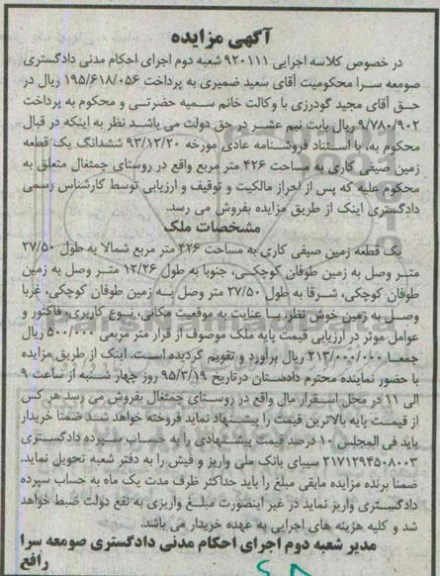 آگهی مزایده
در خصوص کلاسه اجرایی ۹۲۰۱۱۱ شعبه دوم اجرای احکام مدنی دادگستری
صومعه سرا محکومیت آقای سعید ضمیری به پرداخت ۱۹۵/۶۱۸/۰۵۶ ریال در
حق آقای مجید گودرزی با وکالت خانم سمیه حضرتی و محکوم به پرداخت
۹/۷۸۰/۹۰۲ ریال بابت نیم عشر در حق دولت می باشد نظر به اینکه در قبال
محکوم به، با استناد فروشنامه عادی مورخه ۹۳/۱۲/۲۰ ششدانگ یک قطعه
زمین صیفی کاری به مساحت ۴۲۶ متر مربع واقع در روستای چمثغال متعلق به
محکوم علیه که پس از احراز مالکیت و توقیف و ارزیابی توسط کارشناس رسمی
دادگستری اینک از طریق مزایده بفروش می رسد.
مشخصات ملک
یک قطعه زمین صیفی کاری به مساحت ۴۲۶ متر مربع شمالا به طول ۲۷/۵۰
متر وصل به زمین طوفان کوچکی، جنوبا به طول ۱۲/۲۶ متر وصل به زمین
طوفان کوچکی، شرقا به طول ۲۷/۵۰ متر وصل به زمین طوفان کوچکی، غربا
وصل به زمین خوش نظر، با عنایت به موقعیت مکانی، نوع کاربری، فاکتور و
عوامل موثر در ارزیابی قیمت پایه ملک موصوف از قرار متر مربعی ۵۰۰/۰۰۰ ریال
جمعا ۲۱۳/۰۰۰/۰۰۰ ریال برآورد و تقویم گردیده است. اینک از طریق مزایده
با حضور نماینده محترم دادستان درتاریخ ۹۵/۳/۱۹ روز چهار شنبه از ساعت ۹
الی ۱۱ در محل استقرار مال واقع در روستای چمثغال بفروش می رسد هر کس
از قیمت پایه بالاترین قیمت را پیشنهاد نماید فروخته خواهد شد ضمنا خریدار
باید فی المجلس ۱۰ درصد قیمت پیشنهادی را به حساب سپرده دادگستری
۲۱۷۱۲۹۴۵۰۸۰۰۳ سیبای بانک ملی واریز و فیش را به دفتر شعبه تحویل نماید.
ضمنا برنده مزایده مابقی مبلغ را باید حداکثر ظرف مدت یک ماه به حساب سپرده
دادگستری واریز نماید در غیر اینصورت مبلغ واریزی به نفع دولت ضبط خواهد
شد و کلیه هزینه های اجرایی به عهده خریدار می باشد.
مدیر شعبه دوم اجرای احکام مدنی دادگستری صومعه سرا
رافع